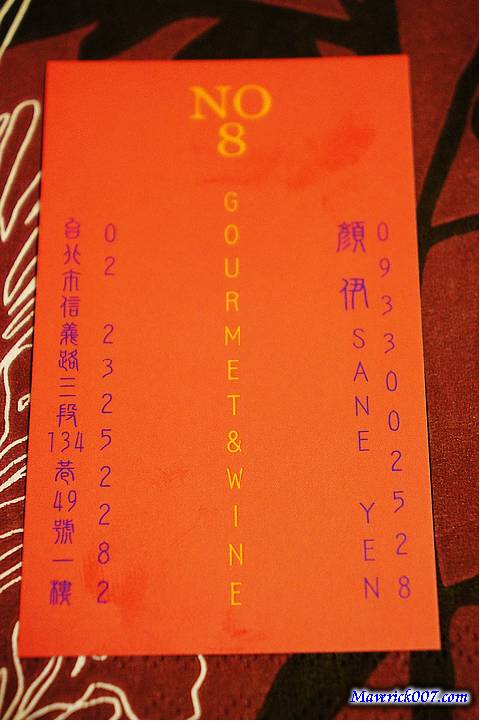 NO
8
GOURMET&WINE
0933002528
顏伊 SANE YEN
02 23252282
台北市信義路三段134巷49號一樓
Maverick007.com